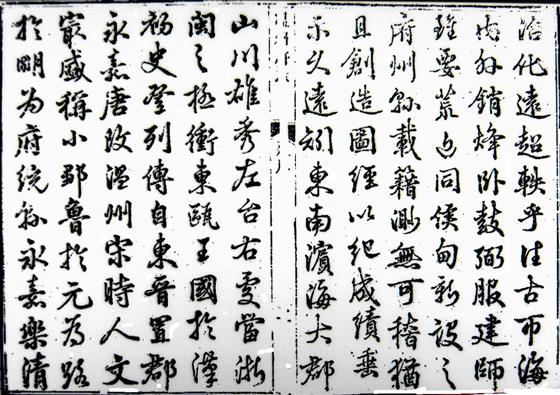 治化遠超軼乎往古而海
内外銷烽卧鼓弼服建師
雖要荒同侯甸新設之
府州縣載籍渺無可稽猶
且創造圖經以紀成績垂
示久遠矧東南濱海大郡
山川雄秀左台右處當浙
閩之極衝東甌王國於漢
初史登列傳自東晉置郡
永嘉唐改温州宋時人文
最盛稱小鄒魯於元為路
於明為府統縣永嘉樂清